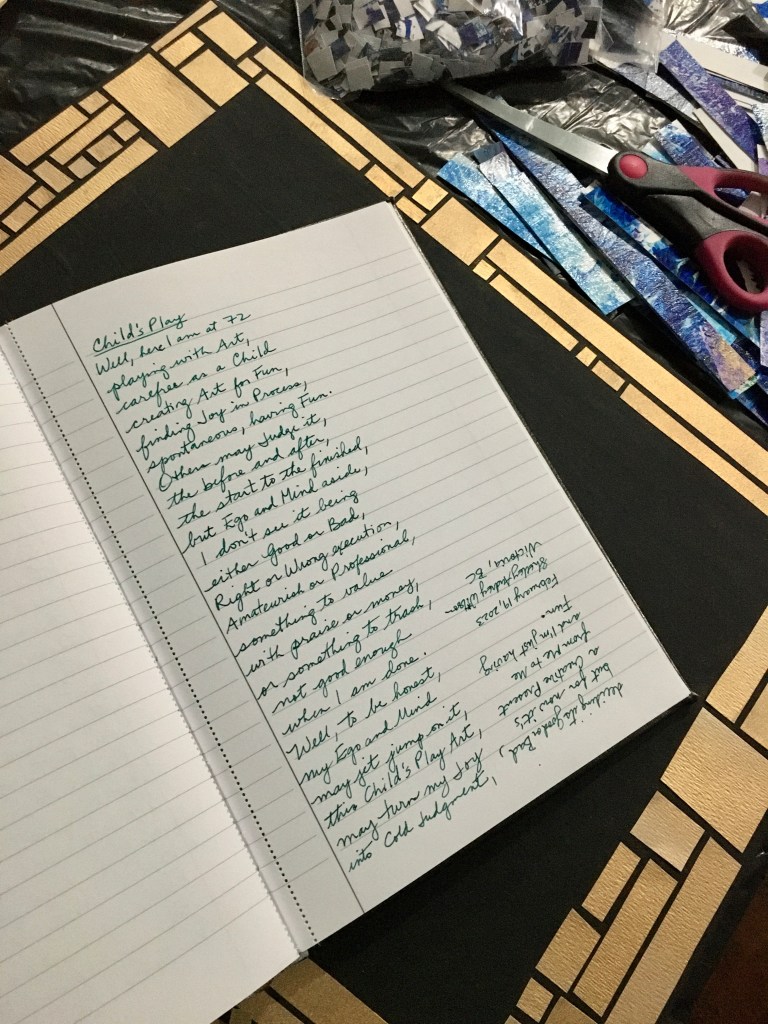 Child's Play
Well, here I am at 72
playing with Art,
carefree as a Child
creating Art for Fun,
finding Joy in Process,
spontaneous, having Fun.
Others may Judge it,
the before and after,
the start to the finished,
but Ego and Mind aside,
I don't see it being
either Good or Bad,
Right or Wrong execution,
Amateurish or Professional,
something to value
with praise or money,
or something to trash,
not good enough
when I am done.
Well, to be honest,
my Ego and Mind
may yet jump on it,
this Child's Play Art,
may turn my Joy
into Cold Judgment,
deciding its Good or Bad,
but for now it's
a Creative Present
from Me to Me
and I'm just having
Fun.
February 19, 2023
Shelley Audrey
Victoria, BC